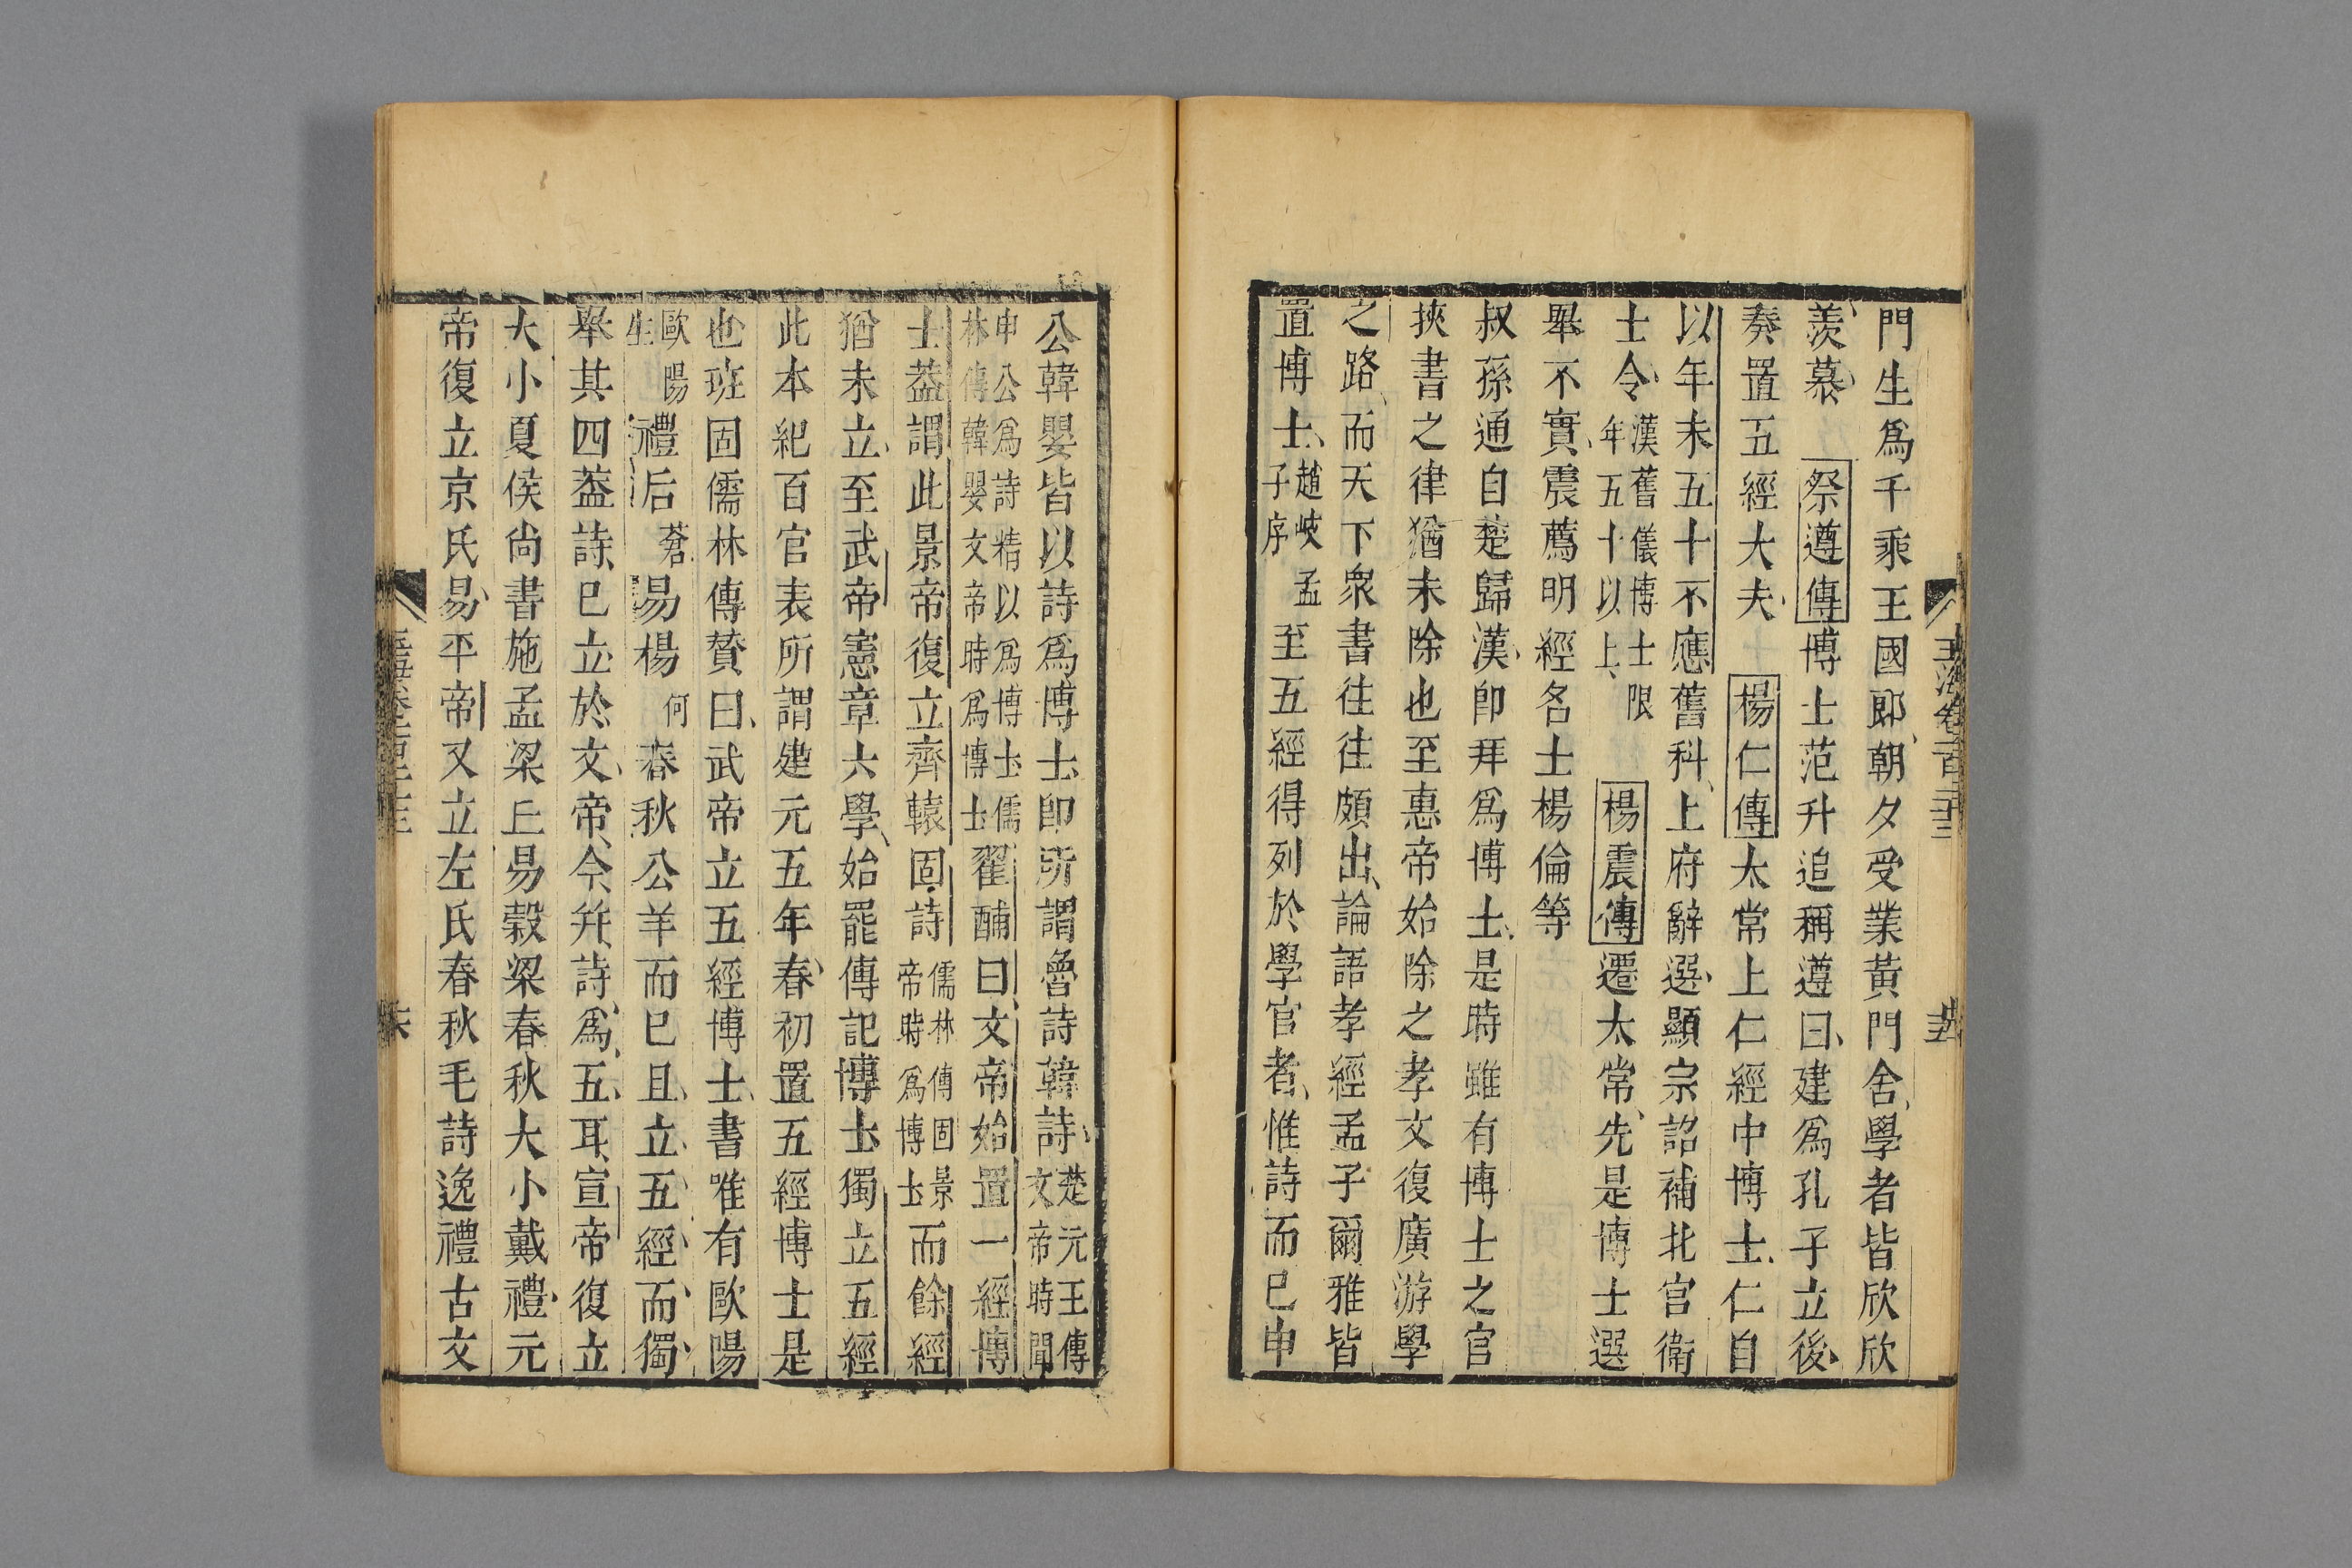 門生爲千乘王國郎朝夕受業黃門舍學者皆欣欣
羨慕 祭遵傳博士范升追稱遵曰建爲孔子立後
奏置五經大夫 楊仁傳太常上仁經中博士仁自
以年未五十不應舊科上府辭選顯宗詔補北宫衛
士令漢舊儀博士限年五十以上 楊震傳遷太常先是博士選
舉不實震薦明經名士楊倫等
叔孫通自楚歸漢即拜爲博士是時雖有博士之官
挾書之律猶未除也至惠帝始除之孝文復廣游學
之路而天下衆書往往頗出論語孝經孟子爾雅皆
置博士趙岐孟子序至五經得列於學官者惟詩而已申
公韓嬰皆以詩爲博士即所謂魯詩韓詩楚元王傳文帝時聞
申公爲詩精以爲博士儒林傳韓嬰文帝時爲博士翟酺曰文帝始置一經博
士葢謂此景帝復立齊轅固詩儒林傳固景帝時爲博士而餘經
猶未立至武帝憲章六學始罷傳記博士獨立五經
此本紀百官表所謂建元五年春初置五經博士是
也班固儒林傳贊曰武帝立五經博士書唯有歐陽
歐陽生禮后蒼易楊何春秋公羊而已且立五經而獨
舉其四葢詩已立於文帝今并詩爲五耳宣帝復立
大小夏侯尚書施孟梁丘易榖梁春秋大小戴禮元
帝復立京氏易平帝又立左氏春秋毛詩逸禮古文